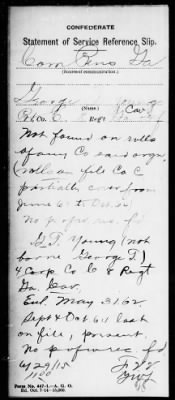 CONFEDERATE
Statement of Service Reference Slip.
Com Pens Ga
(Source of communication.)
George
(Name.)
Cav
Co. C. 8 Reg't
Not found on rolls
of any Co said orgn
(rolls on file Co C
partially cover from
June 61 to Oct 64
No pofw rec. fd
G. T. Young (not
borne George T.)
4 Corp. Co C 8 Regt
Ga. Cav.
Enl. May 31 62.
Sept & Oct 64 last
on file, present.
No pofw rec fd
6/29/15
1100
Form No. 447-1—A. G. O.
Ed. Oct. 7-14—10,000.